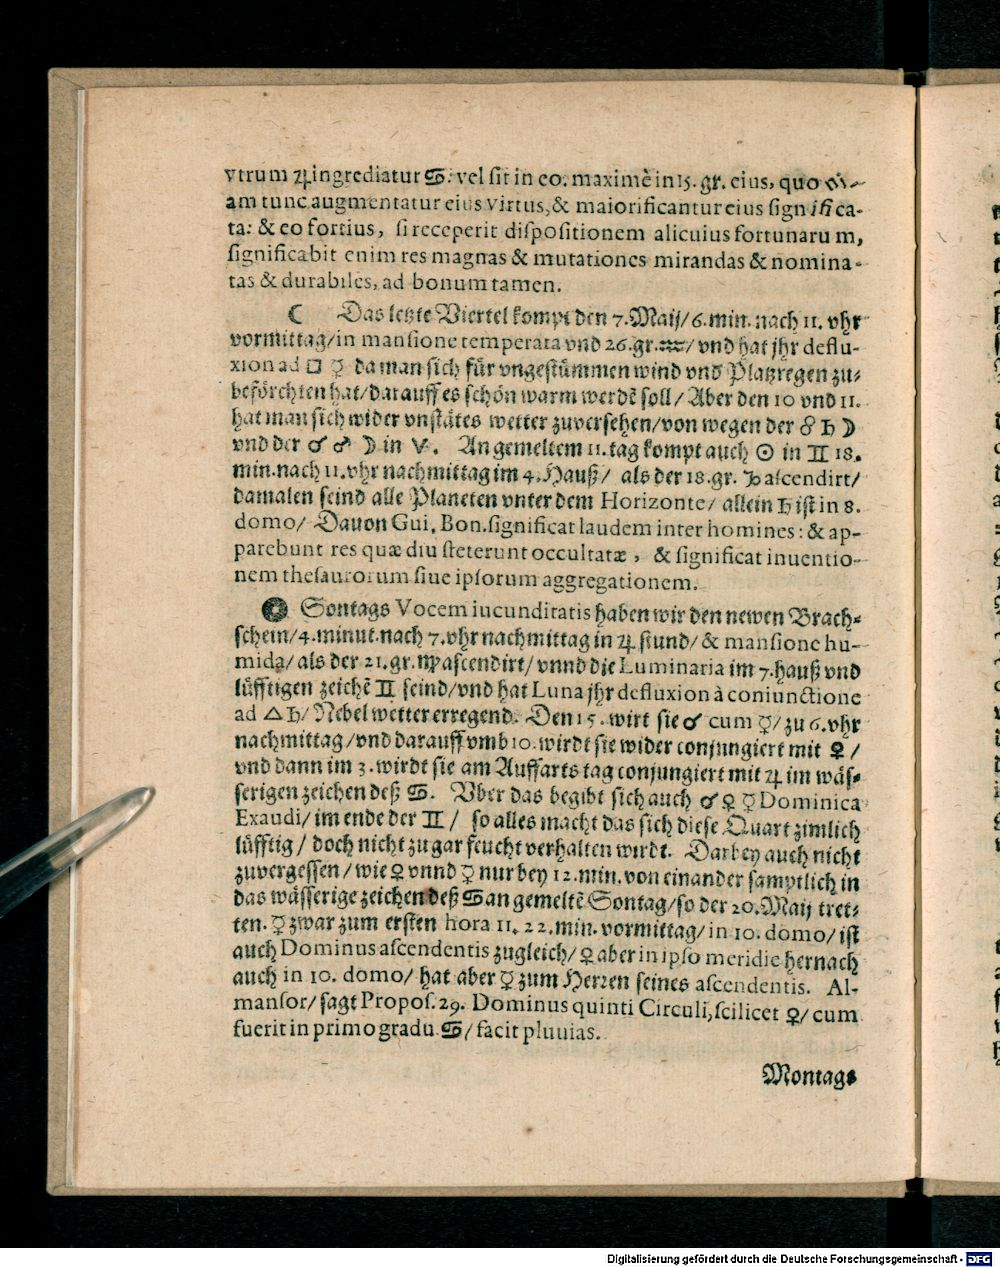 vtrum ♃ ingrediatur ♋: vel ſit in eo. maximè in 15. gr. eius, quo
am tunc augmentatur eius virtus, & maiorificantur eius ſignifica-
ta: & eo fortius, ſi receperit diſpoſitionem alicuius fortunarum,
ſignificabit enim res magnas & mutationes mirandas & nomina-
tas & durabiles, ad bonum tamen.
☾ Das letzte Viertel kompt den 7. Maij/ 6. min. nach 11. vhr
vormittag/ in manſione temperata vnd 26. gr. ♒/ vnd hat jhr deflu-
xion ad □ ☿ da man ſich für vngeſtümmen wind vnd Platzregen zu-
beförchten hat/ darauff es ſchön warm werdẽ ſoll/ Aber den 10 vnd 11.
hat man ſich wider vnſtätes wetter zuverſehen/ von wegen der ☍ ♄ ☽
vnd der ☌ ♂ ☽ in ♈. An gemeltem 11. tag kompt auch ☉ in ♊ 18.
min. nach 11. vhr nachmittag im 4. Hauß/ als der 18. gr. ♑ aſcendirt/
damalen ſeind alle Planeten vnter dem Horizonte/ allein ♄ iſt in 8.
domo/ Dauon Gui. Bon. ſignificat laudem inter homines: & ap-
parebunt res quæ diu ſteterunt occultatæ, & ſignificat inuentio-
nem theſaurorum ſiue ipſorum aggregationem.
● Sontags Vocem iucunditatis haben wir den newen Brach-
ſchein/ 4. minut. nach 7. vhr nachmittag in ♃ ſtund/ & manſione hu-
mida/ als der 21. gr. ♏ aſcendirt/ vnnd die Luminaria im 7. hauß vnd
lüfftigen zeichẽ ♊ ſeind/ vnd hat Luna jhr defluxion à coniunctione
ad △ ♄/ Nebel wetter erregend. Den 15. wirt ſie ☌ cum ☿/ zu 6. vhr
nachmittag/ vnd darauff vmb 10. wirdt ſie wider conjungiert mit ♀/
vnd dann im 3. wirdt ſie am Auffarts tag conjungiert mit ♃ im wäſ-
ſerigen zeichen deß ♋. Vber das begibt ſich auch ☌ ♀ ☿ Dominica
Exaudi/ im ende der ♊/ ſo alles macht das ſich dieſe Quart zimlich
lüfftig/ doch nicht zu gar feucht verhalten wirdt. Darbey auch nicht
zuvergeſſen/ wie ♀ vnnd ☿ nur bey 12. min. von einander ſamptlich in
das wäſſerige zeichen deß ♋ an gemeltẽ Sontag/ ſo der 20. Maij tret-
ten. ☿ zwar zum erſten hora 11. 22. min. vormittag/ in 10. domo/ iſt
auch Dominus aſcendentis zugleich/ ♀ aber in ipſo meridie hernach
auch in 10. domo/ hat aber ☿ zum Herren ſeines aſcendentis. Al-
manſor/ ſagt Propoſ. 29. Dominus quinti Circuli, ſcilicet ♀/ cum
fuerit in primo gradu ♋/ facit pluuias.
Montags
Digitalisierung gefördert durch die Deutsche Forschungsgemeinschaft - DFG